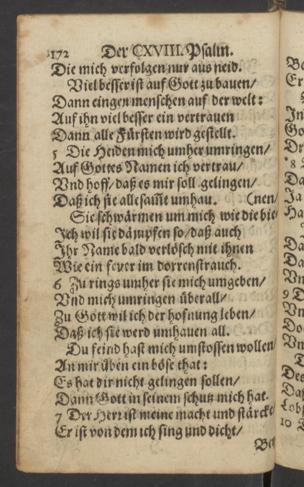 172 Der CXVIII. Psalm.
Die mich verfolgen nur aus neid.
Viel besser ist auf Gott zu bauen/
Dann eingen menschen auf der welt:
Auf ihn viel besser ein vertrauen
Dann alle Fürsten wird gestellt.
5 Die Heiden mich umher umringen/
Auf Gottes Namen ich vertrau/
Vnd hoff/ daß es mir soll gelingen/
Daß ich sie allesamt umhau. (nen/
Sie schwärmen um mich wie die bie
Ich wil sie dämpfen so/ daß auch
Ihr Name bald verlösch mit ihnen
Wie ein feyer im dorrenstrauch.
6 Zu rings umher sie mich umgeben/
Vnd mich umringen überall/
Zu Gott wil ich der hofnung leben/
Daß ich sie werd umhauen all.
Du feind hast mich umstossen wollen/
An mir üben ein böse that:
Es hat dir nicht gelingen sollen/
Dann Gott in seinem schutz mich hat.
7 Der Herr ist meine macht und stärcke/
Er ist von dem ich sing und dicht/